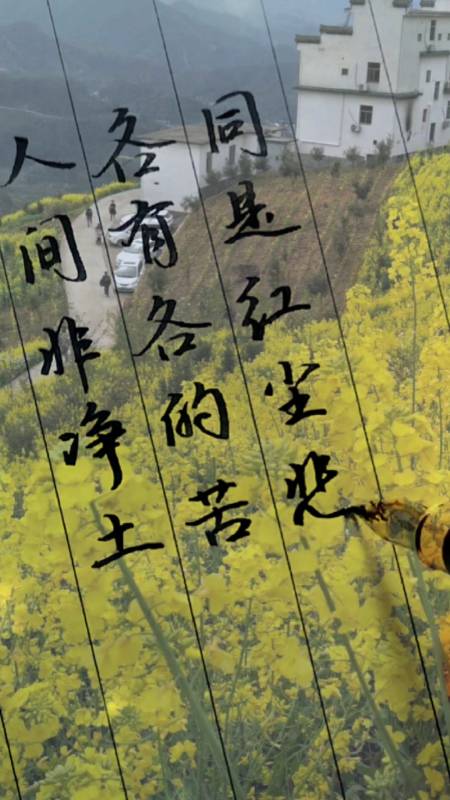 人间非净土
各有各的苦
同是红尘悲